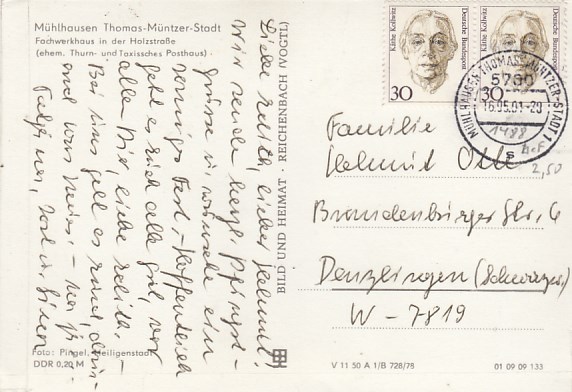 Mühlhausen Thomas-Müntzer-Stadt
Fachwerkhaus in der Holzstraße
(ehem. Thurn- und Taxissches Posthaus)
Liebe Edith, lieber Helmut!
Wir senden herzl. Pfingst-
grüsse u. wünschen ein
sonniges Fest. - Hoffentlich
geht es Euch alle gut, vor
allem Dir, liebe Edith. -
Bei uns geht es
mal was Neues. -
Foto: Pingel, Heiligenstadt
DDR 0,20 M
BILD UND HEIMAT · REICHENBACH (VOGTL)
Käthe Kollwitz
Deutsche Bundespost
30
Käthe Kollwitz
Deutsche Bundespost
30
MÜHLHAUSEN, THOMAS-MÜNTZER-STADT 1
5700
16.05.91-20
s
1488
2,50
Familie
Helmut Ott
Brandenburger Str. 6
Denzlingen (Schwarzw.)
W - 7819
V 11 50 A 1/B 728/78
01 09 09 133